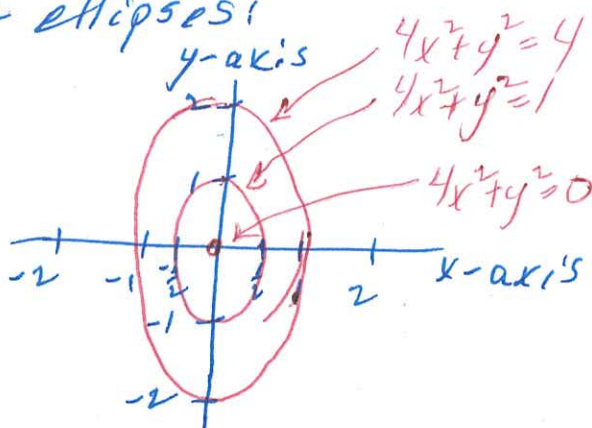 ellipses:
y-axis
4x²+y²=4
4x²+y²=1
4x²+y²=0
2
1
-2 -1 -1/2 1/2 1 2 x-axis
-1
-2